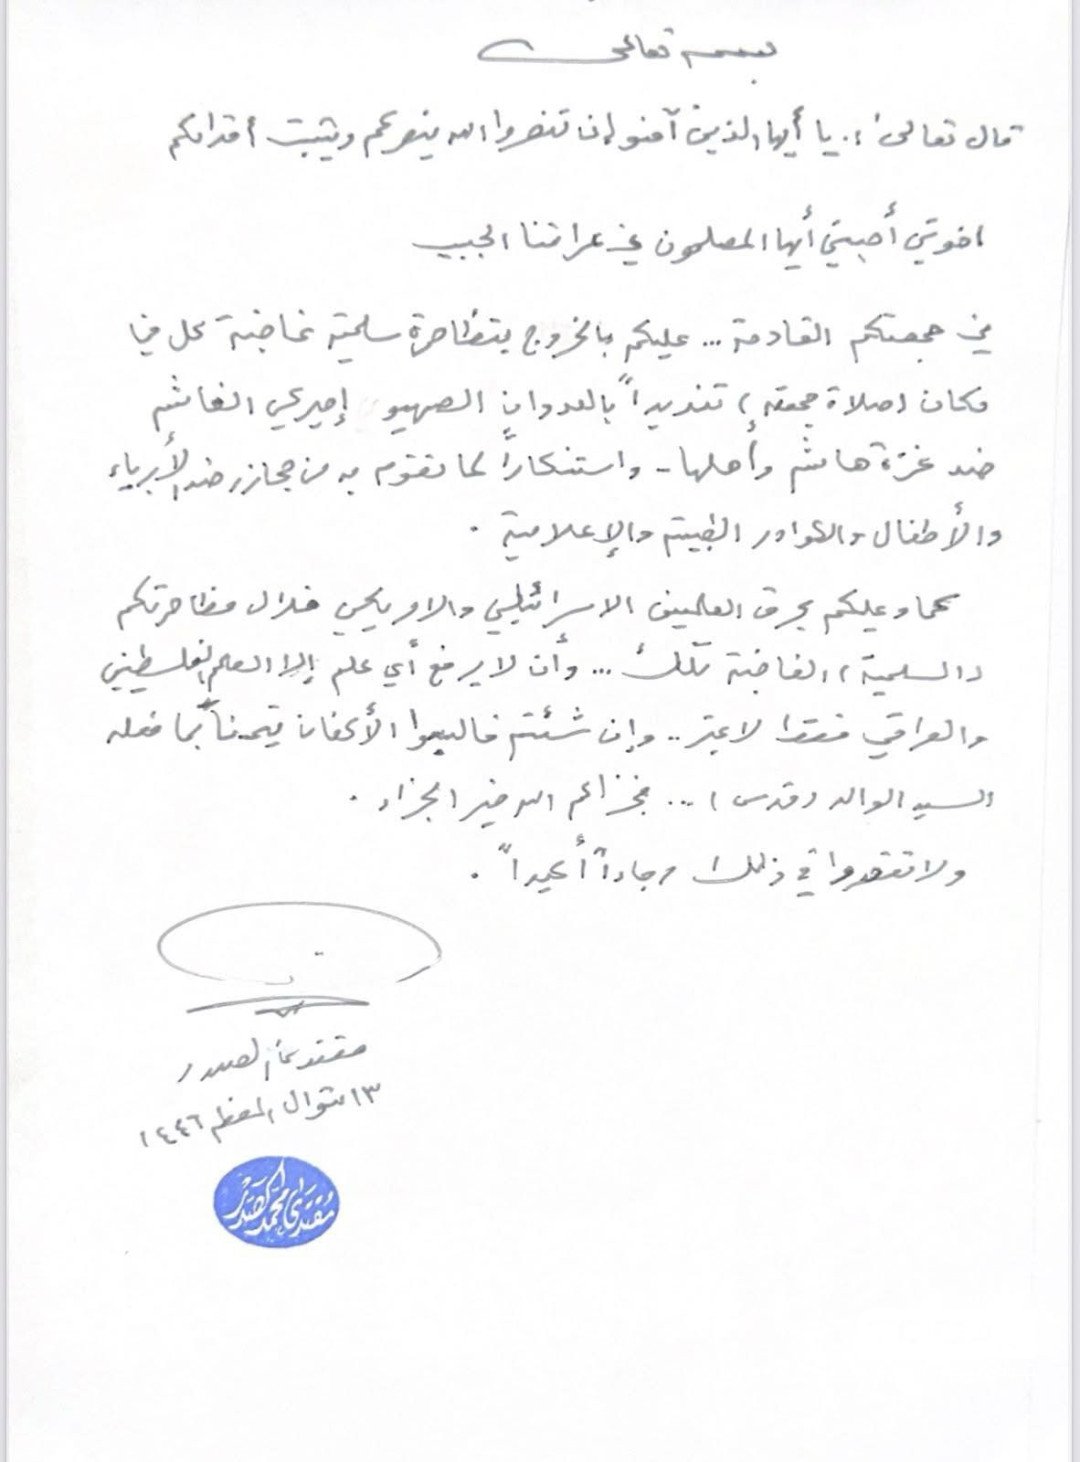 بسمه تعالى
قال تعالى: يا أيها الذين آمنوا إن تنصروا الله ينصركم ويثبت أقدامكم
اخوتي أحبتي أيها المصلحون في عراقنا الحبيب
في جمعتكم القادمة... عليكم بالخروج بتظاهرة سلمية غاضبة كل في
مكان (صلاة جمعته) تنديداً بالعدوان الصهيو إمريكي الغاشم
ضد غزة هاشم وأهلها - واستنكاراً لما تقوم به من مجازر ضد الأبرياء
والأطفال والكوادر الطبية والإعلامية.
كما وعليكم بحرق العلمين الاسرائيلي والامريكي خلال مظاهرتكم
(السلمية) الغاضبة تلك... وأن لا يرفع أي علم إلا العلم الفلسطيني
والعراقي فقط لا غير.. وإن شئتم فالبسوا الأكفان تيمناً بما فعله
السيد الوالد (قدس)... فجزاكم الله خير الجزاء.
ولا تقصروا في ذلك رجاءاً أكيداً.
مقتدى الصدر
١٣ شوال المعظم ١٤٤٦
مُقتدى محمد الصدر